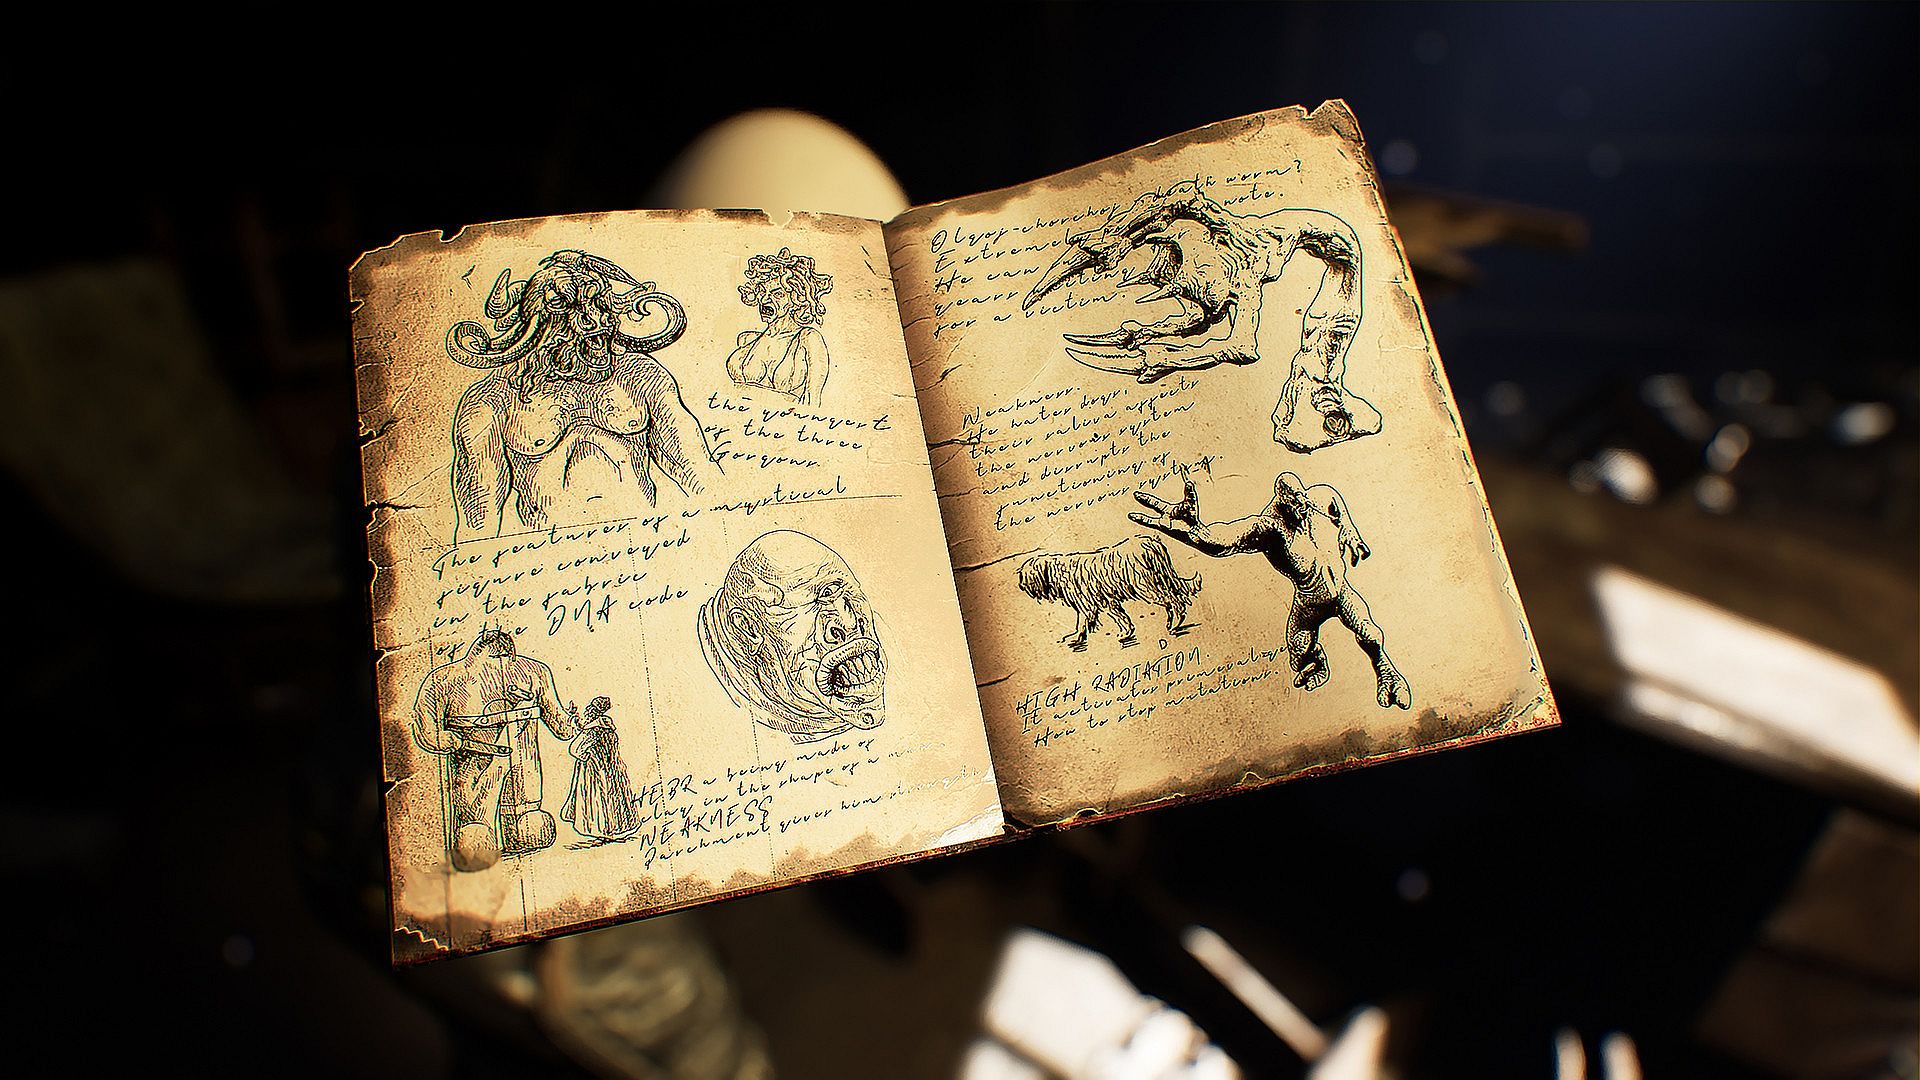 the youngest
of the three
Gorgons.
The features of a mystical
figure conveyed
in the fabric
of the DNA code
HEBR a being made of
clay in the shape of a
WEAKNESS
Parchment gives him strength
Olgoi-chorchoi, death worm?
Extremely note.
He can
years waiting
for a victim.
Weakness.
He hates dogs,
their saliva affects
the nervous system
and disrupts the
functioning of
the nervous system.
D
HIGH RADIATION.
It activates primeval
How to stop mutations.